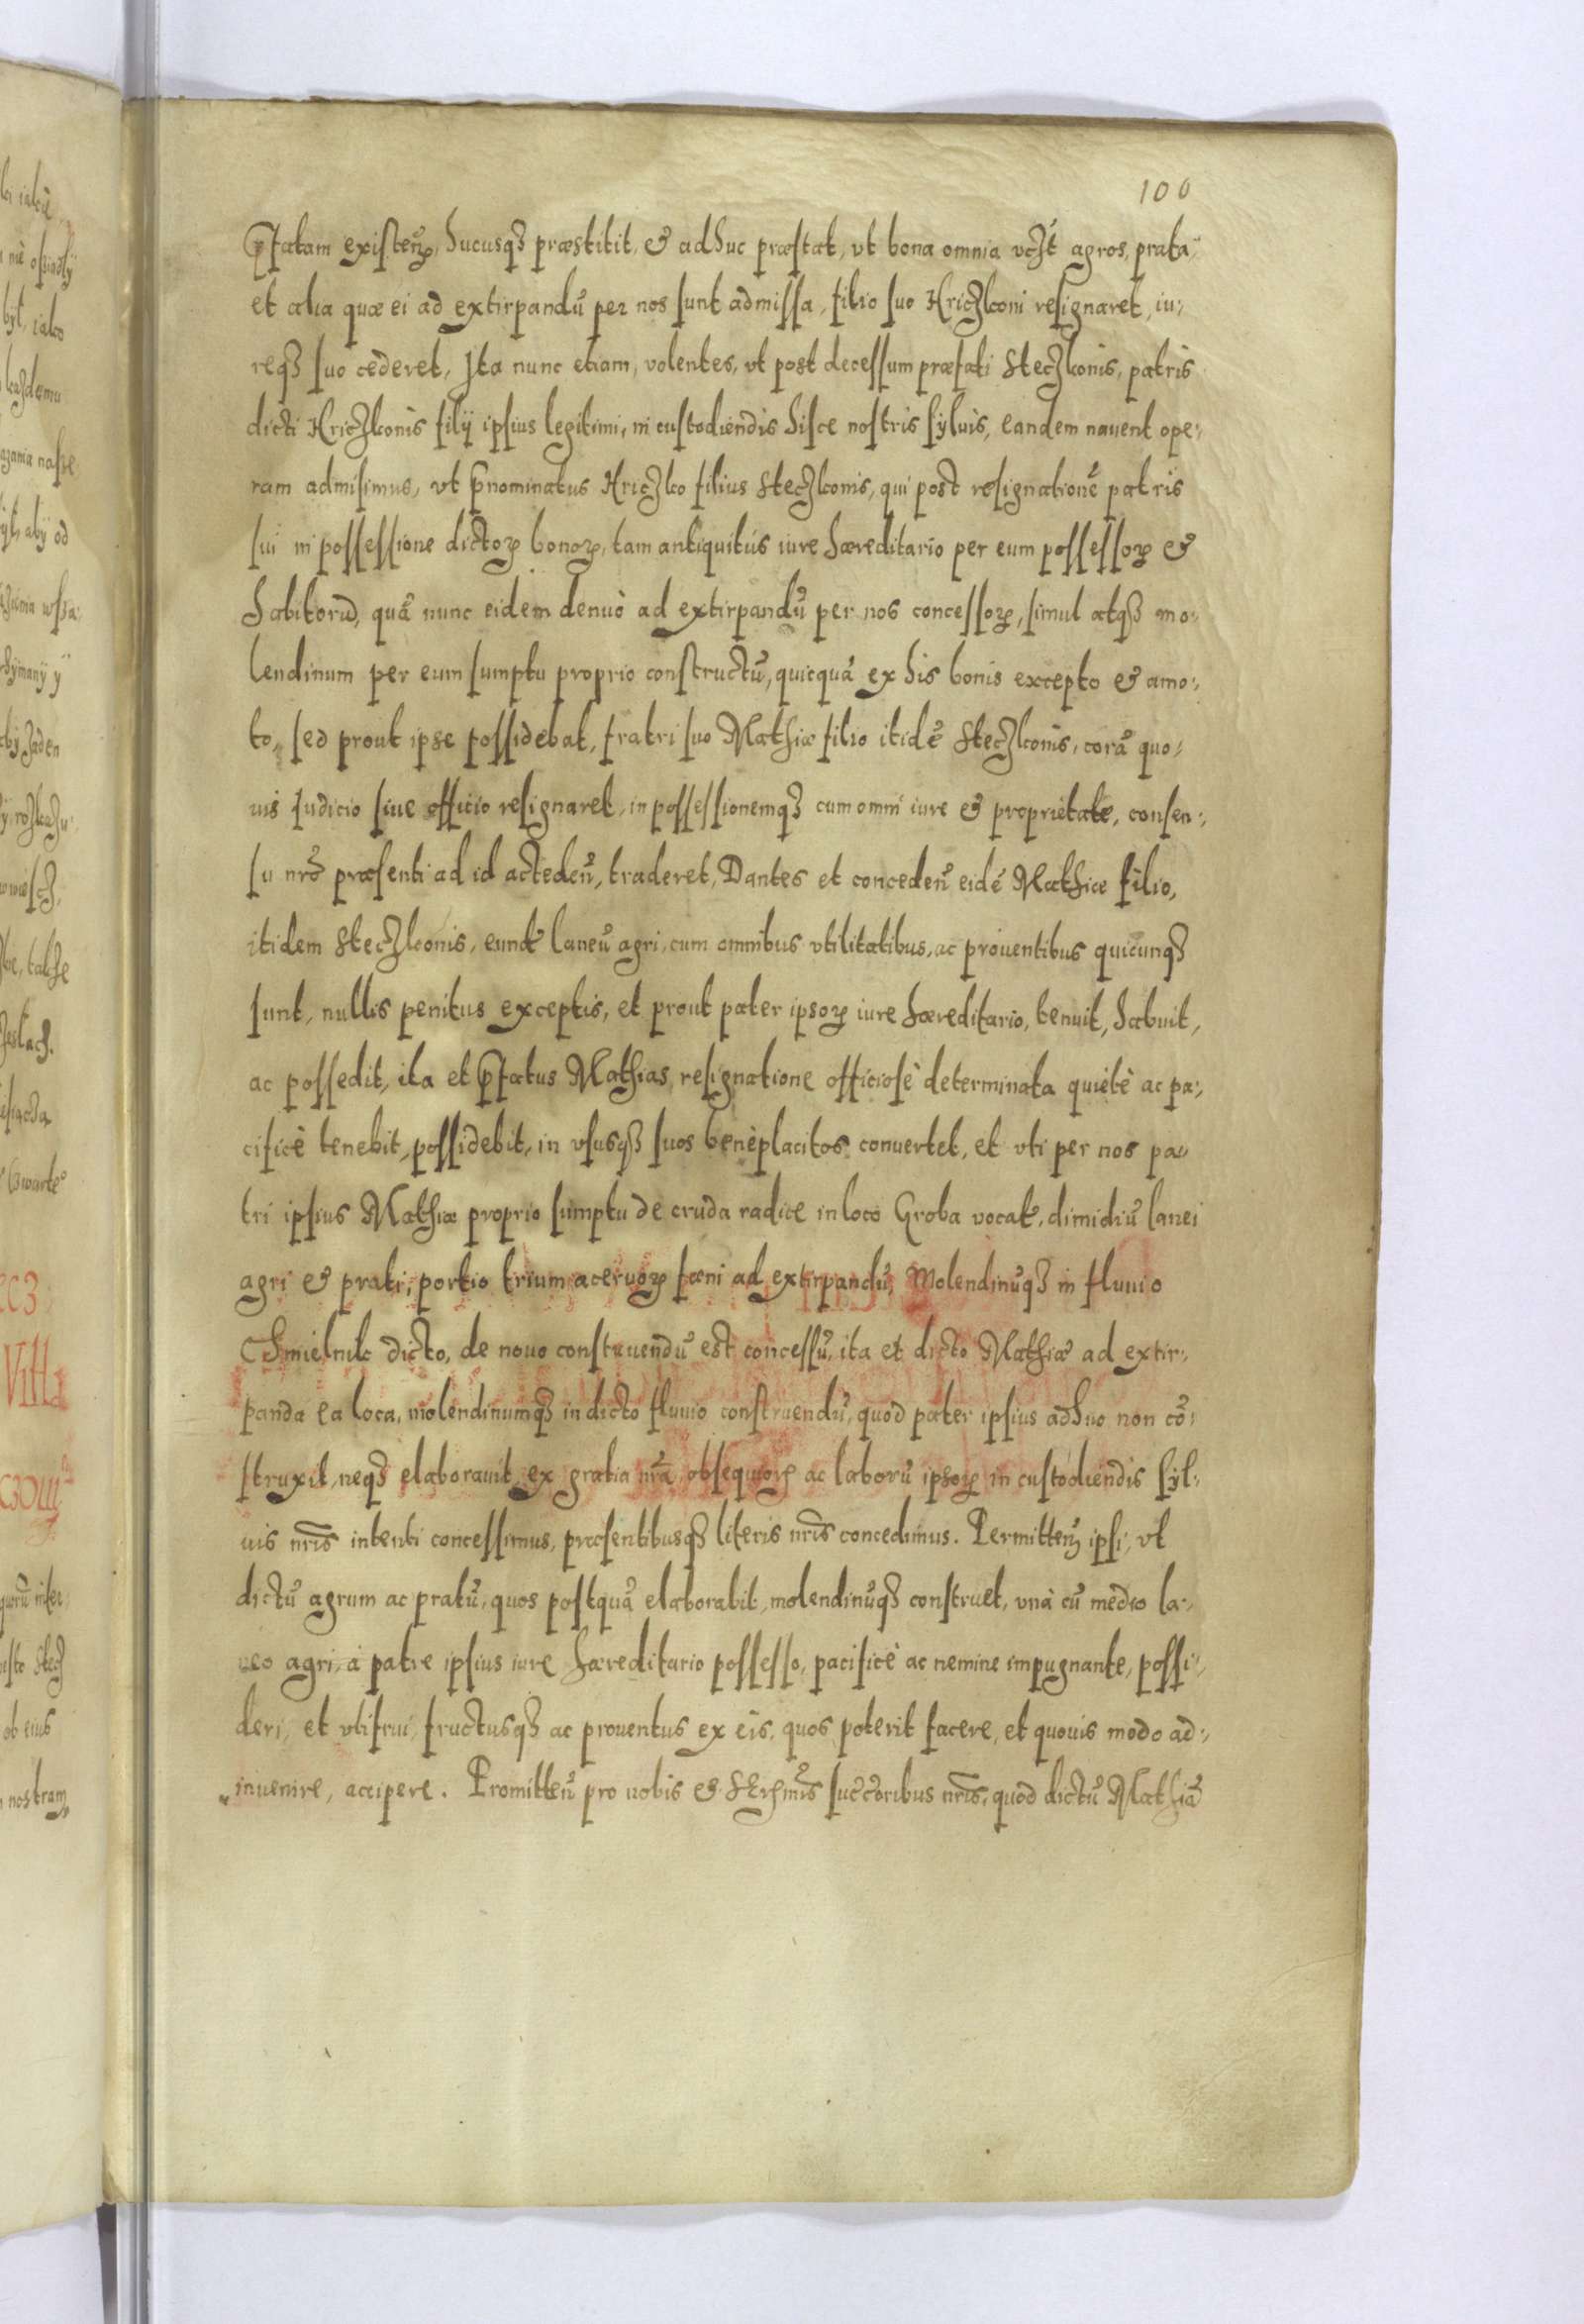 100
p̄fatam existen̄, hucusq3 præstitit, & adhuc præstat, vt bona omnia vc3t agros, prata,
et alia quæ ei ad extirpandū per nos sunt admissa, filio suo Hric3koni resignaret, iu-
req3 suo cederet, Ita nunc etiam, volentes, vt post decessum præfati Stec3konis, patris
dicti Hric3konis filij ipsius legitimi, in custodiendis hisce nostris syluis, eandem nauent ope-
ram admisimus, vt p̄nominatus Hric3ko filius Stec3konis, qui post resignationē patris
sui in possessione dictoꝝ bonoꝝ, tam antiquitùs iure hæreditario per eum possessoꝝ &
habitorū, quā nunc eidem denuò ad extirpandū per nos concessoꝝ, simul atq3 mo-
lendinum per eum sumptu proprio constructū, quicquā ex his bonis excepto & amo-
to, sed prout ipse possidebat, fratri suo Mathiæ filio itidē Stec3konis, corā quo-
uis Iudicio siue officio resignaret, in possessionemq3 cum omni iure & proprietate, consen-
su nrō præsenti ad id acteden̄, traderet, Dantes et conceden̄ eidē Mathiæ filio,
itidem Stec3konis, eund̄ laneū agri, cum omnibus vtilitatibus, ac prouentibus quicunq3
sunt, nullis penitus exceptis, et prout pater ipsoꝝ iure hæreditario, tenuit, habuit,
ac possedit, ita et p̄fatus Mathias, resignatione officiosè determinata quietè ac pa-
cificè tenebit, possidebit, in vsusq3 suos beneplacitos conuertet, et vti per nos pa-
tri ipsius Mathiæ proprio sumptu de cruda radice in loco Groba vocat̄, dimidiū lanei
agri & prati, portio trium aceruoꝝ fæni ad extirpandū, Molendinūq3 in fluuio
Chmielnik dicto, de nouo construendū est concessū, ita et dicto Mathiæ ad extir-
panda ea loca, molendinumq3 in dicto fluuio construendū, quod pater ipsius adhuc non cō-
struxit, neq3 elaborauit, ex gratia nrā, obsequioꝝ ac laborū ipsoꝝ in custodiendis syl-
uis nrīs intenti concessimus, præsentibusq3 literis nrīs concedimus. Permitten̄ ipsi, vt
dictū agrum ac pratū, quos postquā elaborabit, molendinūq3 construet, vnà cū medio la-
neo agri, à patre ipsius iure hæreditario possesso, pacificè ac nemine impugnante, possi-
deri, et vtifrui, fructusq3 ac prouentus ex eis, quos poterit facere, et quouis modo ad-
inuenire, accipere. Promitten̄ pro nobis & SErm̄is succ̄oribus nrīs, quod dictū Mathiā